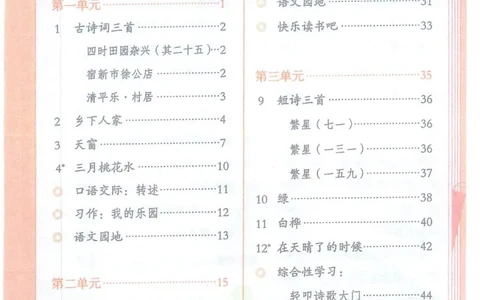 第一单元 1
1 古诗词三首 2
四时田园杂兴（其二十五） 2
宿新市徐公店 2
清平乐·村居 3
2 乡下人家 4
3 天窗 7
4* 三月桃花水 10
口语交际：转述 11
习作：我的乐园 12
语文园地 13
第二单元 15
语文园地 31
快乐读书吧 33
第三单元 35
9 短诗三首 36
繁星（七一） 36
繁星（一三一） 36
繁星（一五九） 37
10 绿 38
11 白桦 40
12* 在天晴了的时候 42
综合性学习：
轻叩诗歌大门 44